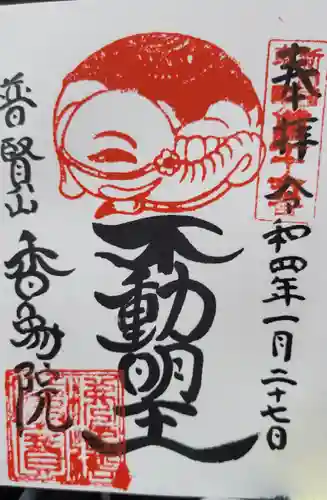 奉拝
令和四年一月二十七日
不動明王
普賢山
香象院